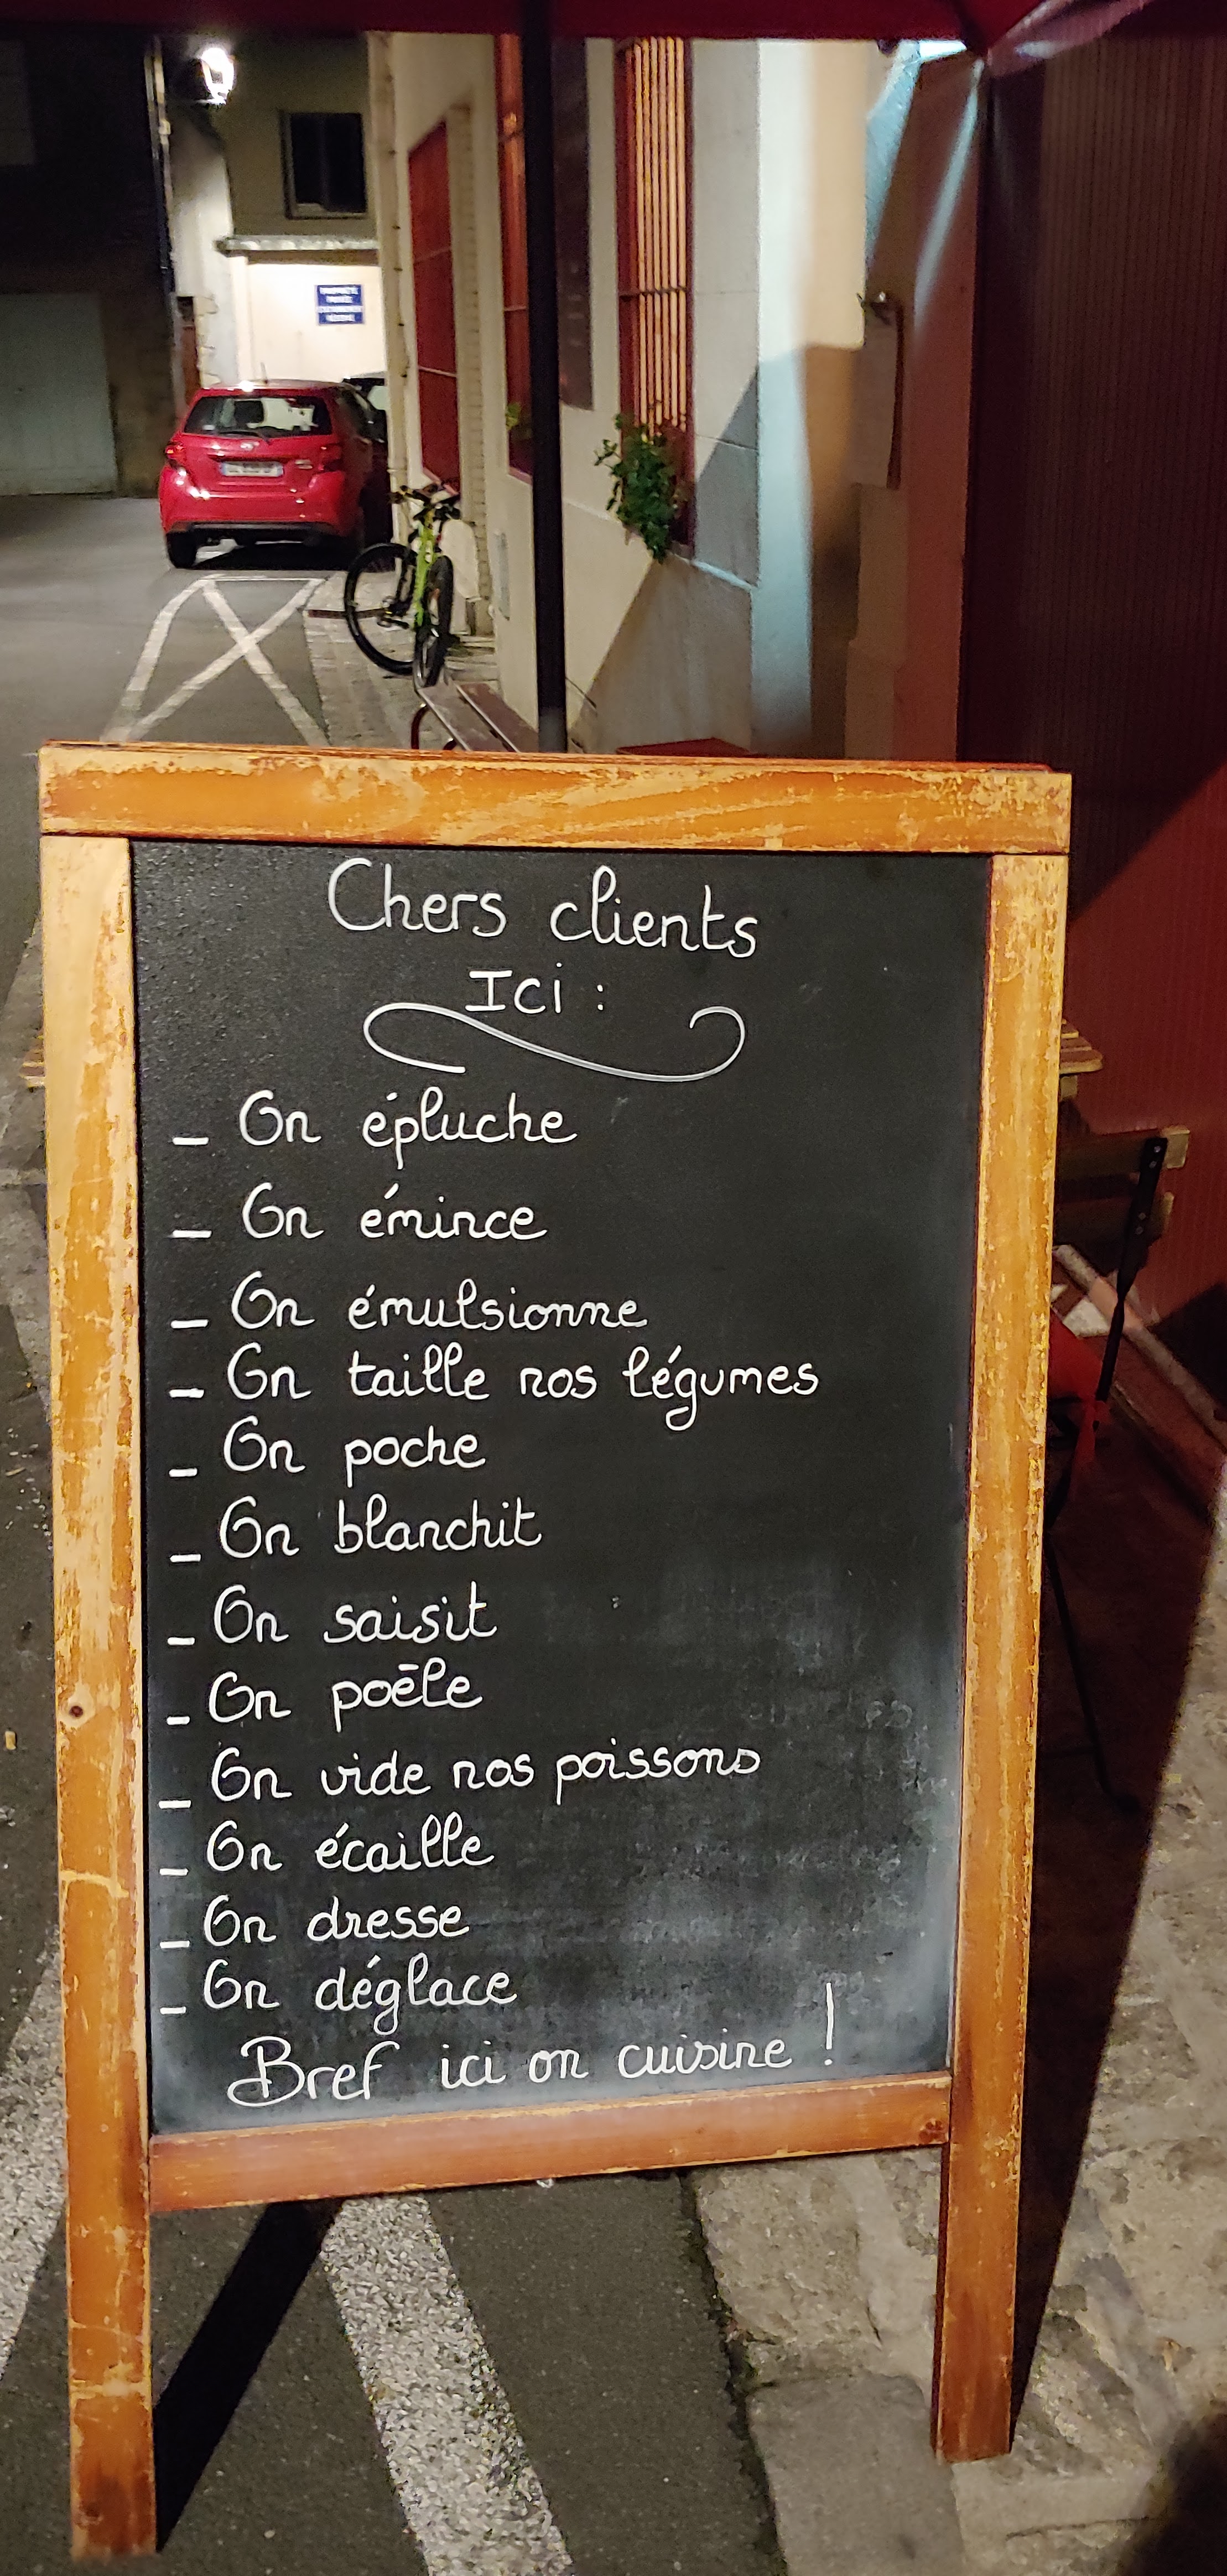 Chers clients
Ici :
_ On épluche
_ On émince
_ On émulsionne
_ On taille nos légumes
_ On poche
_ On blanchit
_ On saisit
_ On poêle
_ On vide nos poissons
_ On écaille
_ On dresse
_ On déglace
Bref ici on cuisine !